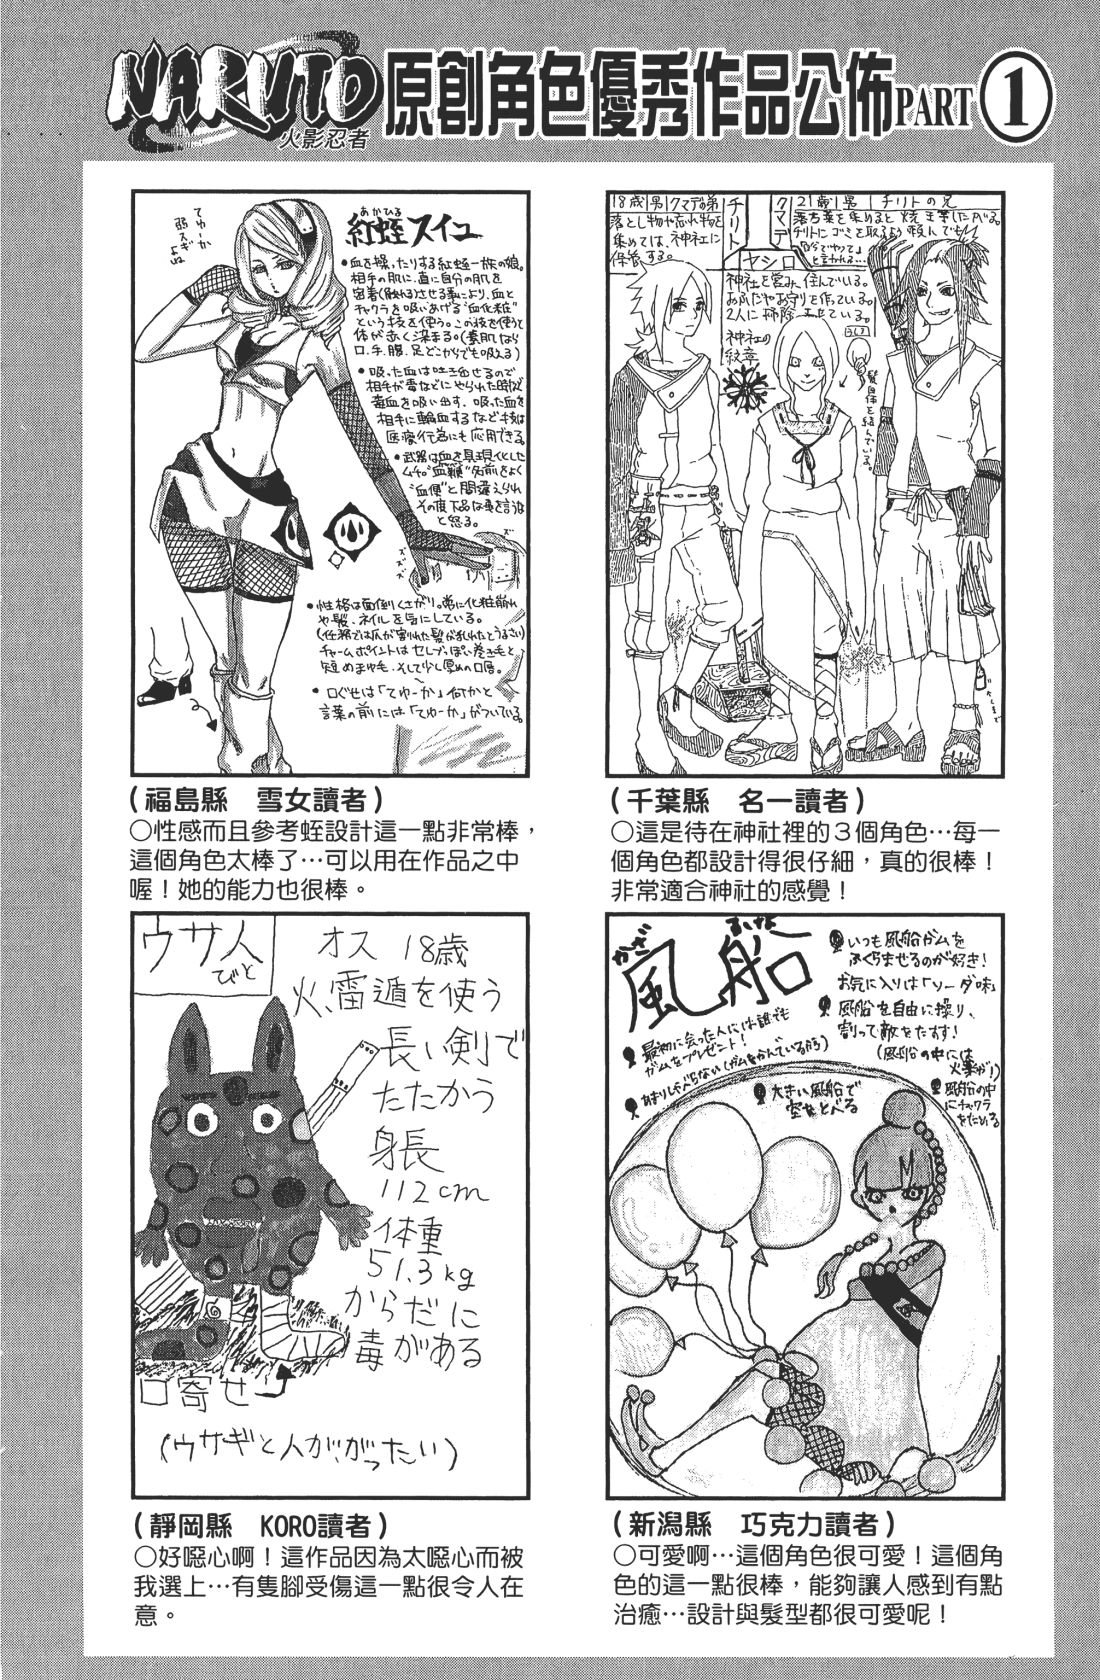 NARUTO
火影忍者
原創角色優秀作品公佈PART 1
あかひる
紅蛭スイコ
てゅーか
弱スギ
よね
•血を操ったりする紅蛭一族の娘。
相手の肌に、直に自分の肌を
密着(触れる)させる事により、血と
チャクラを吸いあげる"血化粧"
という技を使う。この技を使うと
体が赤く染まる。(素肌なら
口、手、腹、足どこからでも吸える)
•吸った血は吐き出せるので
相手が毒などにやられた時など
毒血を吸い出す、吸った血を
相手に輸血するなど技は
医療行為にも応用できる。
•武器は血を具現化した
ムチ。"血鞭"名前をよく
"血便"と間違えられ
その度下品な事を言うな
と怒る。
ズ
ズ
ズ
•性格は面倒くさがり。常に化粧崩れ
や髪、ネイルを気にしている。
(任務では爪が割れた髪が乱れたとうるさい)
チャームポイントはセレブっぽい巻き毛と
短めまゆ毛、そして少し厚めの口唇。
•口ぐせは「てゅーか」何かと
言葉の前には「てゅーか」がついている。
(福島縣 雪女讀者)
○性感而且參考蛭設計這一點非常棒，
這個角色太棒了…可以用在作品之中
喔！她的能力也很棒。
18歳 男 クマデの弟
落とし物や忘れ物を
集めては、神社に
保管する。
チリト
クマデ
21歳 男 チリトの兄
落ち葉を集めると焼き芋したべる。
チリトにゴミを取るよう頼んでも
"自分でやって"
と言われる…
ヤシロ
神社を営み、住んでいる。
おふだやお守りを作っている。
2人に掃除させている。
神社の
紋章
うしろ
髪自体を結んでいる。
(千葉縣 名一讀者)
○這是待在神社裡的３個角色…每一
個角色都設計得很仔細，真的很棒！
非常適合神社的感覺！
ウサ人
びと
オス 18歳
火、雷遁を使う
長い剣で
たたかう
身長
112cm
体重
51.3kg
からだに
毒がある
口寄せ
(ウサギと人ががったい)
(靜岡縣 KORO讀者)
○好噁心啊！這作品因為太噁心而被
我選上…有隻腳受傷這一點很令人在
意。
かざ
風船
いつも風船ガムを
ふくらませるのが好き！
お気に入りは「ソーダ味」
風船を自由に操り、
割って敵をたおす！
(風船の中には
火薬がり)
最初に会った人には誰でも
ガムをプレゼント！
あまりしゃべらない(ガムをかんでいる為)
大きい風船で
空をとべる
風船の中
にチャクラ
をためる
(新潟縣 巧克力讀者)
○可愛啊…這個角色很可愛！這個角
色的這一點很棒，能夠讓人感到有點
治癒…設計與髮型都很可愛呢！